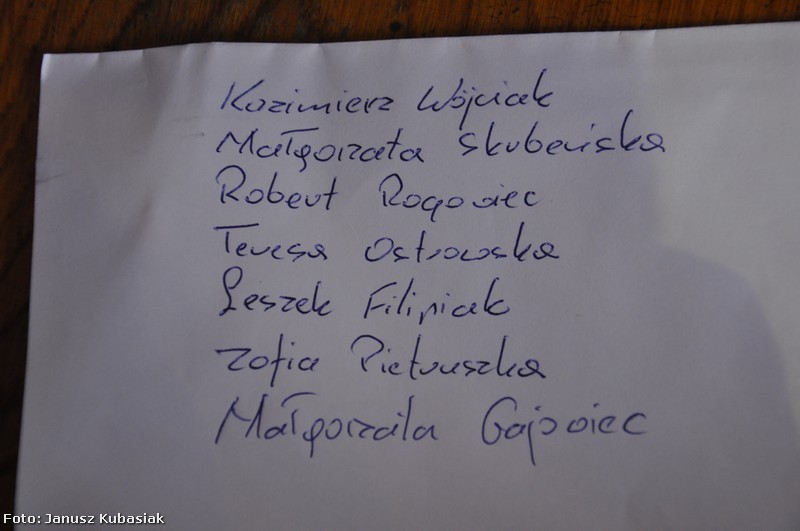 Kazimierz Wójciak
Małgorzata Skubeńska
Robert Rogowiec
Teresa Ostrowska
Leszek Filipiak
Zofia Pietruszka
Małgorzata Gajowiec
Foto: Janusz Kubasiak